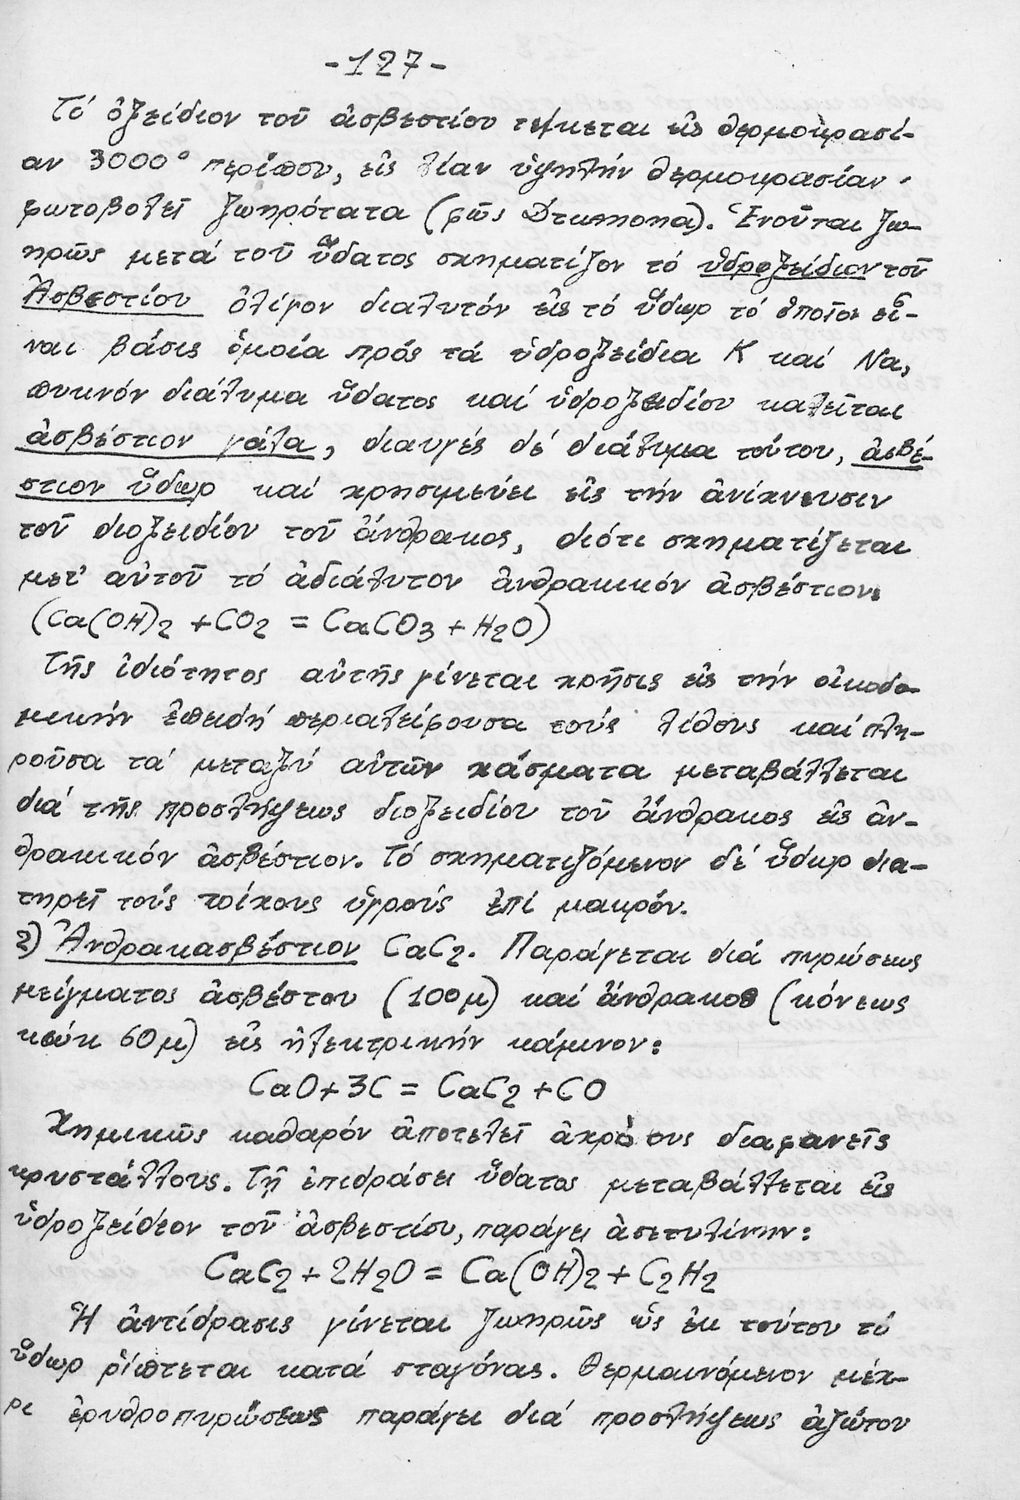 -127-
Τό ὀξείδιον τοῦ ἀσβεστίου τήκεται εἰς θερμοκρασί-
αν 3000° περίπου, εἰς λίαν ὑψηλήν θερμοκρασίαν
φωτοβολεῖ ζωηρότατα (φῶς Drummond). Ἑνοῦται ζω-
ηρῶς μετά τοῦ ὕδατος σχηματίζον τό ὑδροξείδιον τοῦ
Ἀσβεστίου ὀλίγον διαλυτόν εἰς τό ὕδωρ τό ὁποῖον εἶ-
ναι βάσις ὁμοία πρός τά ὑδροξείδια K καί Na,
πυκνόν διάλυμα ὕδατος καί ὑδροξειδίου καλεῖται
ἀσβέστιον γάλα, διαυγές δέ διάλυμα τούτου, ἀσβέ-
στιον ὕδωρ καί χρησιμεύει εἰς τήν ἀνίχνευσιν
τοῦ διοξειδίου τοῦ ἄνθρακος, διότι σχηματίζεται
μετ' αὐτοῦ τό ἀδιάλυτον ἀνθρακικόν ἀσβέστιον.
(Ca(OH)2 + CO2 = CaCO3 + H2O)
Τῆς ἰδιότητος αὐτῆς γίνεται χρῆσις εἰς τήν οἰκοδο-
μικήν ἐπειδή περιαλείφουσα τούς λίθους καί πλη-
ροῦσα τά μεταξύ αὐτῶν χάσματα μεταβάλλεται
διά τῆς προσλήψεως διοξειδίου τοῦ ἄνθρακος εἰς ἀν-
θρακικόν ἀσβέστιον. Τό σχηματιζόμενον δέ ὕδωρ δια-
τηρεῖ τούς τοίχους ὑγρούς ἐπί μακρόν.
2) Ἀνθρακασβέστιον CaC2. Παράγεται διά πυρώσεως
μείγματος ἀσβέστου (100μ) καί ἄνθρακος (κόνεως
κώκ 60μ) εἰς ἠλεκτρικήν κάμινον:
CaO + 3C = CaC2 + CO
Χημικῶς καθαρόν ἀποτελεῖ ἀχρόους διαφανεῖς
κρυστάλλους. Τῇ ἐπιδράσει ὕδατος μεταβάλλεται εἰς
ὑδροξείδιον τοῦ ἀσβεστίου, παράγει ἀσετυλίνην:
CaC2 + 2H2O = Ca(OH)2 + C2H2
Ἡ ἀντίδρασις γίνεται ζωηρῶς ὡς ἐκ τούτου τό
ὕδωρ ρίπτεται κατά σταγόνας. Θερμαινόμενον μέχ-
ρι ἐρυθροπυρώσεως παράγει διά προσλήψεως ἀζώτου